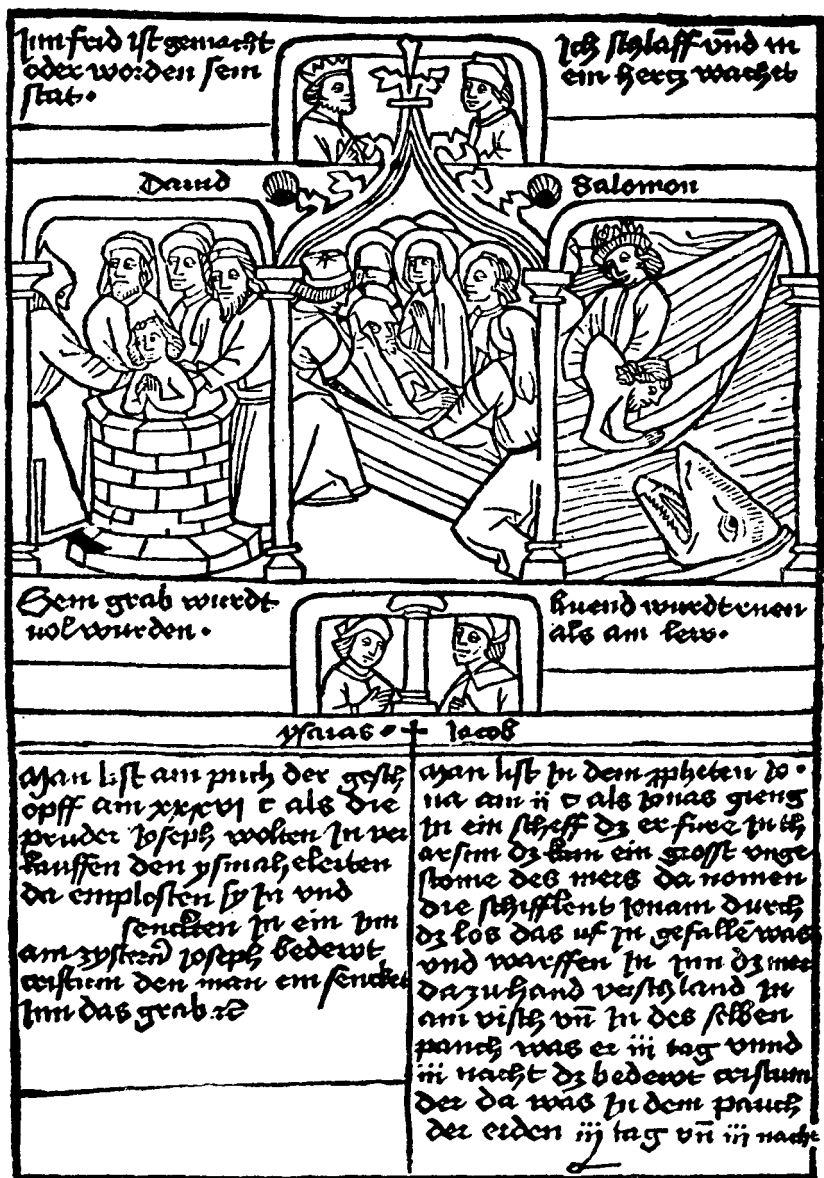 Inn frid ist gemacht
oder worden sein
stat.
Ich schlaff vnd m
ein hertz wachet
Dauid
Salomon
Sein grab wurdt
vol wurden.
huend wurdt ruen
als am lew.
ysaias. Jacob
Man list am puch der gesch
opff am xxxvi c als die
pruder Joseph wolten In ver
kauffen den ysmaheleiten
da emplosten sy In vnd
senckten In ein Inn
am zystern Joseph bedewt
cristum den man ein sencket
Inn das grab. rc
Man list In dem ppheten Jo
na am ii c als Jonas gieng
In ein scheff dz er fure In th
arsim dz kam ein grosst vnge
stome des mers da nomen
die schifflent Jonam durch
dz los das uf In gefallē was
vnd warffen In Inn dz mer
da zuhand verschland In
am visch vn̄ In des selben
pauch was er iii tag vnnd
iii nacht dz bedewt cristum
der da was In dem pauch
der erden iij tag vn̄ iii nacht